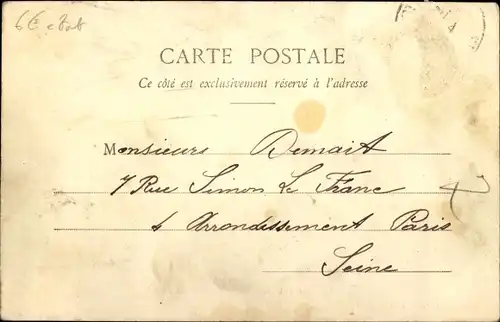 6€
CARTE POSTALE
Ce côté est exclusivement réservé à l'adresse
Monsieurs Demait
7 Rue Simon Le Franc
4 Arrondissement Paris
Seine